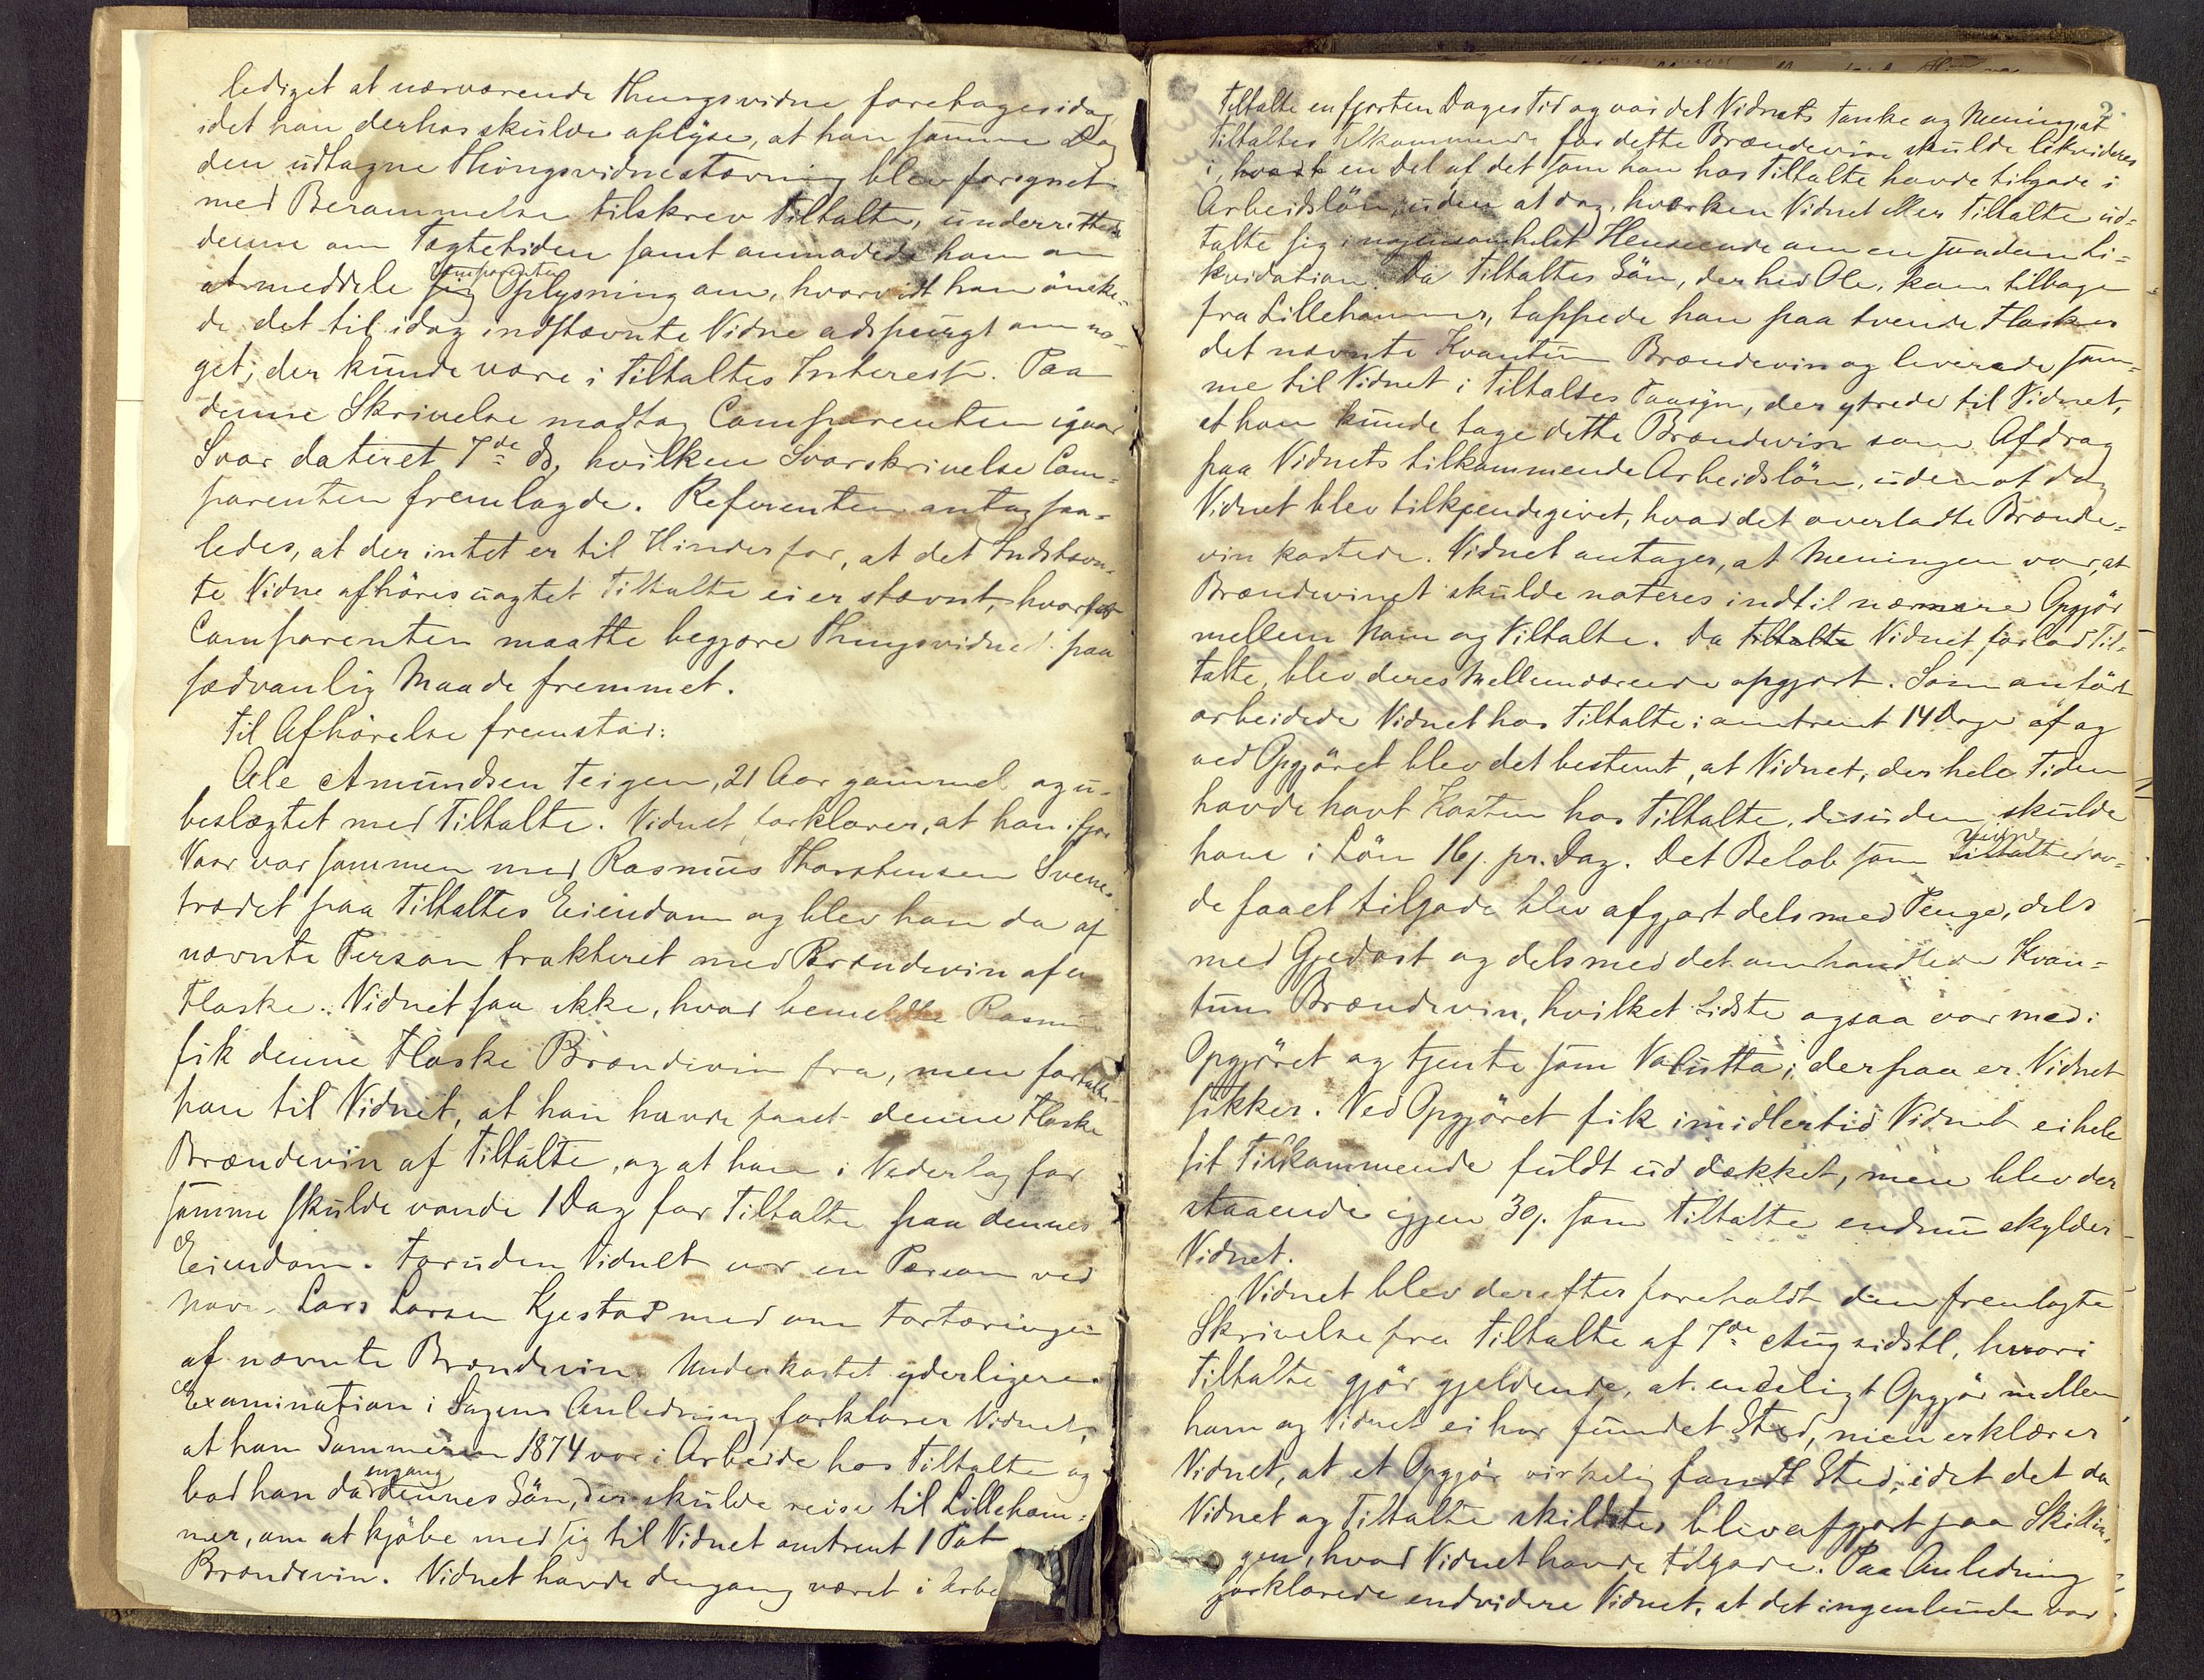 lediget at nærværende Thingsvidne foretages idag
idet han derhos skulde oplyse, at han samme Dag
den udtagne Thingsvidnestævning blev forsynet
med Berammelse tilskrev Tiltalte, underrettede
denne om Tægtetiden samt anmodede ham om
at meddele Comparenten Oplysning om, hvorvidt han önske-
de det til idag indstævnte Vidne adspurgt om no-
get, der kunde være i Tiltaltes Interesse. Paa
denne Skrivelse modtog Comparenten igaar
Svar dateret 7de ds, hvilken Svarskrivelse Com-
parenten fremlagde. Referenten antog saa-
ledes, at der intet er til Hinder for, at det Indstævn-
te Vidne afhöres uagtet Tiltalte ei er stævnt, hvorfor
Comparenten maatte begjære Thingsvidnet paa
sædvanlig Maade fremmet.
Til Afhörelse fremstod:
Ole Amundsen Teigen, 21 Aar gammel og u-
beslægtet med Tiltalte. Vidnet forklarer, at han ifjor
Vaar var sammen med Rasmus Thorstensen Svene-
trædet paa Tiltaltes Eiendom og blev han da af
nævnte Person trakteret med Brændevin af en
Flaske. Vidnet saa ikke, hvor bemeldte Rasmus
fik denne Flaske Brændevin fra, men fortalte
han til Vidnet, at han havde faaet denne Flaske
Brændevin af Tiltalte, og at han i Vederlag for
samme skulde vande 1 Dag for Tiltalte paa dennes
Eiendom. Foruden Vidnet var en Person ved
Navn Lars Larsen Kjestad med om Fortæringen
af nævnte Brændevin. Underkastet yderligere
Examination i Sagens Anledning forklarer Vidnet,
at han Sommeren 1874 var i Arbeide hos Tiltalte og
bad han da engang dennes Sön, der skulde reise til Lilleham-
mer, om at kjöbe med sig til Vidnet omtrent 1 Pot
Brændevin. Vidnet havde dengang været i Arbe
2
Tiltalte en fjorten Dages Tid og var det Vidnets Tanke og Mening, at
Tiltaltes Tilkommende for dette Brændevin skulde likvideres
i, en Del af det som han hos Tiltalte havde tilgode i
Arbeidslön, uden at dog hverken Vidnet eller Tiltalte ud-
talte sig i nogensomhelst Henseende om en saadan Li-
kvidation. Da Tiltaltes Sön, der hed Ole, kom tilbage
fra Lillehammer, tappede han paa tvende Flasker
det nævnte Kvantum Brændevin og leverede sam-
me til Vidnet i Tiltaltes Paasyn, der ytrede til Vidnet,
at han kunde tage dette Brændevin som Afdrag
paa Vidnets tilkommende Arbeidslön, uden at dog
Vidnet blev tilkjendegivet, hvad det overladte Brænde-
vin kostede. Vidnet antager, at Meningen var, at
Brændevinet skulde noteres indtil nærmere Opgjör
mellem ham og Tiltalte. Da Tiltalte Vidnet forlod Til-
talte, blev deres Mellemværende opgjort. Som anfört
arbeidede Vidnet hos Tiltalte i omtrent 14 Dage af og
ved Opgjöret blev det bestemt, at Vidnet, der hele Tiden
havde havt Kosten hos Tiltalte, desuden skulde
have i Lön 16 s. pr. Dag. Det Beløb som Vidnet hav-
de faaet tilgode blev afgjort dels med Penge, dels
med Gjedost og dels med det omhandlede Kvan-
tum Brændevin, hvilket Sidste ogsaa var med i
Opgjöret og tjente som Valutta; derpaa er Vidnet
sikker. Ved Opgjöret fik imidlertid Vidnet ei hele
sit Tilkommende fuldt ud dækket, men blev der
staaende igjen 30 s. som Tiltalte endnu skylder
Vidnet.
Vidnet blev derefter foreholdt den fremlagte
Skrivelse fra Tiltalte af 7de Aug sidstl, hvori
Tiltalte gjör gjeldende, at endeligt Opgjör mellem
ham og Vidnet ei har fundet Sted, men erklærer
Vidnet, at et Opgjör virkelig fandt Sted, idet det da
Vidnet og Tiltalte skildtes blev afgjort paa Skillin-
gen, hvad Vidnet havde tilgode. Paa Anledning
forklarede endvidere Vidnet, at det ingenlunde var